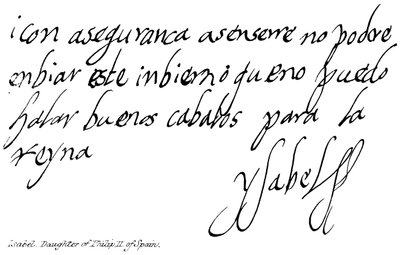 i con aseguranca asenserre no podre
enbiar este inbierno que no puedo
halar buenos cabalos para la
reyna
ysabel
Isabel. Daughter of Philip II. of Spain.